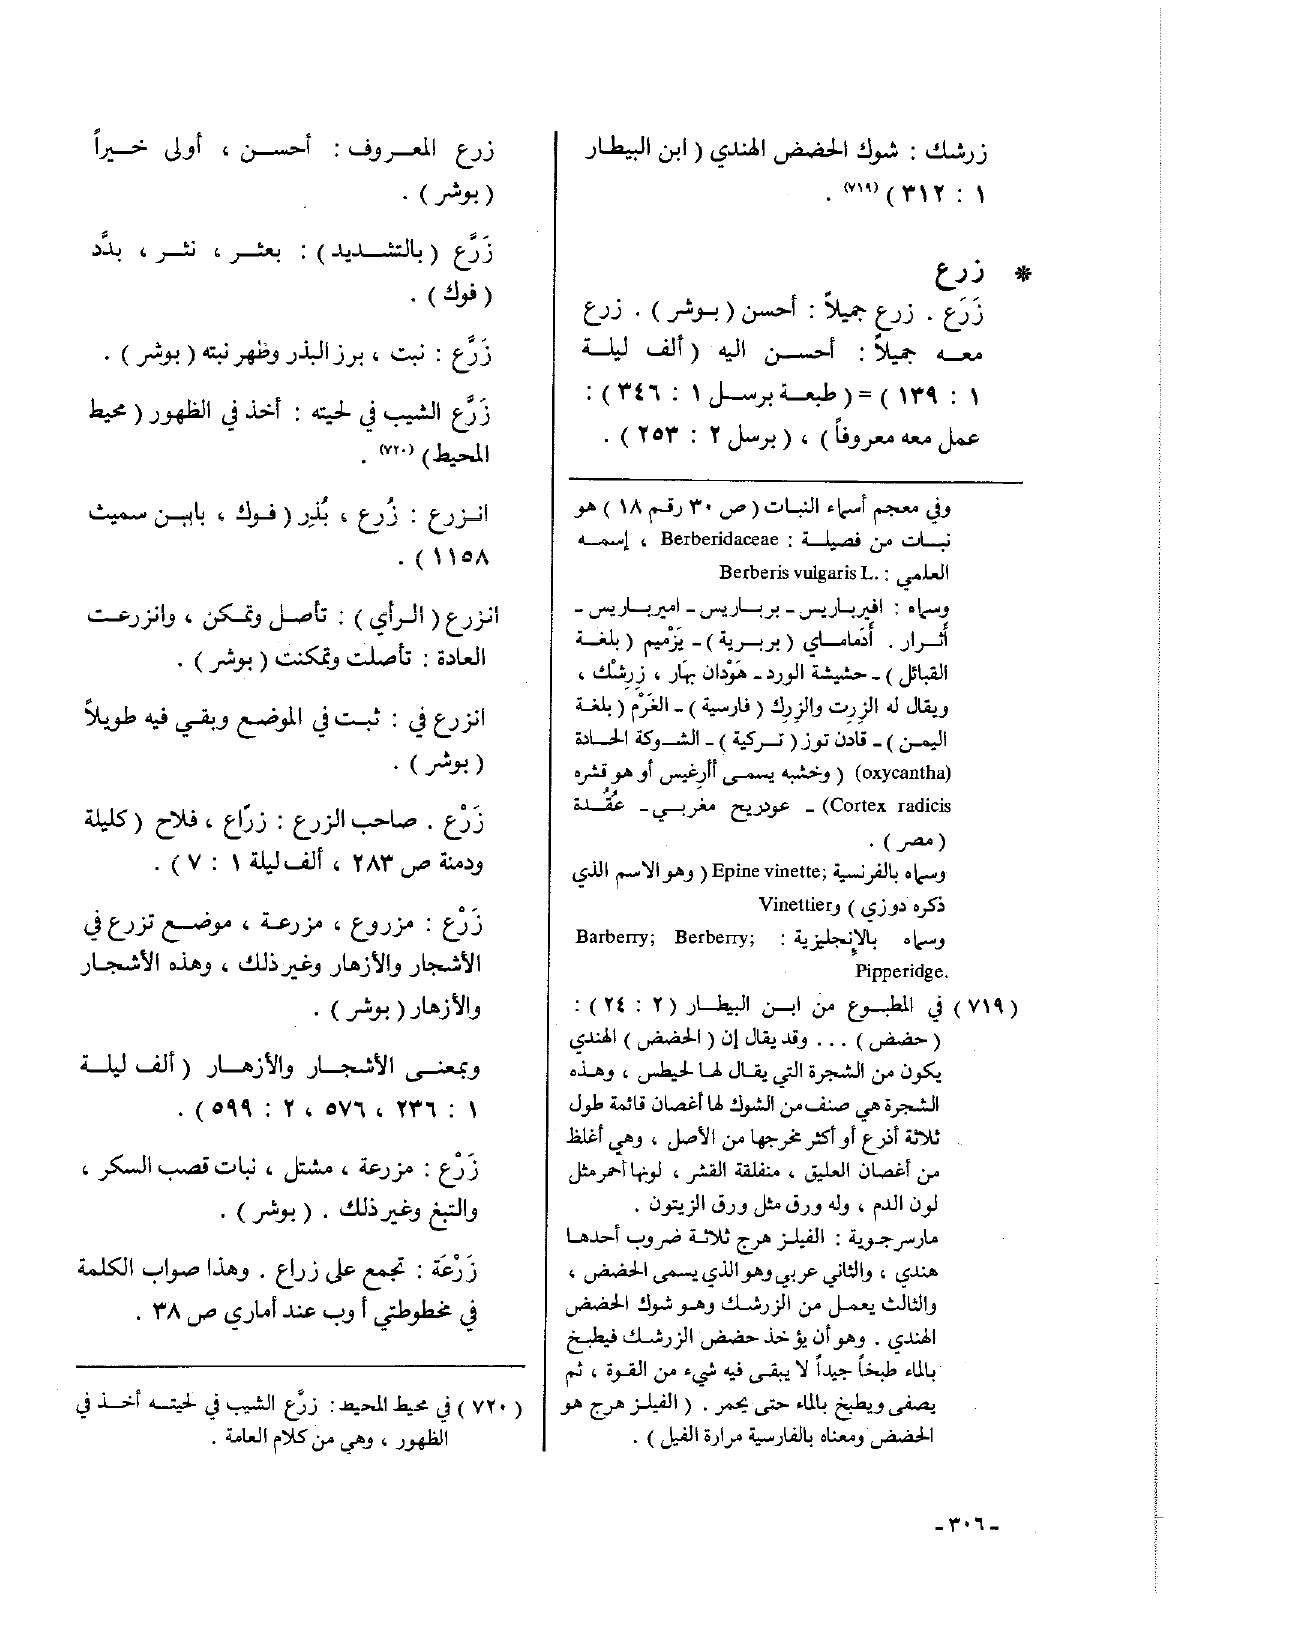 زرشك : شوك الحضض الهندي ( ابن البيطار
١ : ٣١٢ ) (٧١٩) .
* زرع
زَرَع . زرع جميلاً : أحسن ( بوشر ) . زرع
معه جميلاً : أحسن اليه ( ألف ليلة
١ : ١٣٩ ) = ( طبعة برسل ١ : ٣٤٦ ) :
عمل معه معروفاً ) ، ( برسل ٢ : ٢٥٣ ) .
وفي معجم أسماء النبات ( ص ٣٠ رقم ١٨ ) هو
نبات من فصيلة : Berberidaceae ، إسمه
العلمي : Berberis vulgaris L.
وسماه : اقبرباريس - برباريس - امبرباريس -
أثرار . أدماماي ( بربرية ) - يَزْميم ( بلغة
القبائل ) - حشيشة الورد - هَوْدان بهار ، زِرِشْك ،
ويقال له الزرت والزرك ( فارسية ) - الغَرْم ( بلغة
اليمن ) - قادن توز ( تركية ) - الشوكة الحادة
(oxycantha) ( وخشبه يسمى أأرغيس أو هو قشره
Cortex radicis) - عودريح مغربي - عُقْدة
( مصر ) .
وسماه بالفرنسية ;Epine vinette ( وهو الاسم الذي
ذكره دوزي ) وVinettier
وسماه بالإنجليزية : Barberry; Berberry;
Pipperidge.
( ٧١٩ ) في المطبوع من ابن البيطار ( ٢ : ٢٤ ) :
( حضض ) ... وقد يقال إن ( الحضض ) الهندي
يكون من الشجرة التي يقال لها لخيطس ، وهذه
الشجرة هي صنف من الشوك لها أغصان قائمة طول
ثلاثة أذرع أو أكثر مخرجها من الأصل ، وهي أغلظ
من أغصان العليق ، منفلقة القشر ، لونها أحمر مثل
لون الدم ، وله ورق مثل ورق الزيتون .
مارسرجوية : الفيلز هرج ثلاثة ضروب أحدها
هندي ، والثاني عربي وهو الذي يسمى الحضض ،
والثالث يعمل من الزرشك وهو شوك الحضض
الهندي . وهو أن يؤخذ حضض الزرشك فيطبخ
بالماء طبخاً جيداً لا يبقى فيه شيء من القوة ، ثم
يصفى ويطبخ بالماء حتى يحمر . ( الفيلز هرج هو
الحضض ومعناه بالفارسية مرارة الفيل ) .
زرع المعروف : أحسن ، أولى خيراً
( بوشر ) .
زَرَّع ( بالتشديد ) : بعثر ، نثر ، بدَّد
( فوك ) .
زَرَّع : نبت ، برز البذر وظهر نبته ( بوشر ) .
زَرَّع الشيب في لحيته : أخذ في الظهور ( محيط
المحيط ) (٧٢٠) .
انزرع : زُرع ، بُذر ( فوك ، باين سميث
١١٥٨ ) .
انزرع ( الرأي ) : تأصل وتمكن ، وانزرعت
العادة : تأصلت وتمكنت ( بوشر ) .
انزرع في : ثبت في الموضع وبقي فيه طويلاً
( بوشر ) .
زَرْع . صاحب الزرع : زرّاع ، فلاح ( كليلة
ودمنة ص ٢٨٣ ، ألف ليلة ١ : ٧ ) .
زَرْع : مزروع ، مزرعة ، موضع تزرع في
الأشجار والأزهار وغير ذلك ، وهذه الأشجار
والأزهار ( بوشر ) .
وبمعنى الأشجار والأزهار ( ألف ليلة
١ : ٢٣٦ ، ٥٧٦ ، ٢ : ٥٩٩ ) .
زَرْع : مزرعة ، مشتل ، نبات قصب السكر ،
والتبغ وغير ذلك . ( بوشر ) .
زَرْعَة : تجمع على زراع . وهذا صواب الكلمة
في مخطوطتي أ وب عند أماري ص ٣٨ .
( ٧٢٠ ) في محيط المحيط : زرَّع الشيب في لحيته أخذ في
الظهور ، وهي من كلام العامة .
- ٣٠٦ -